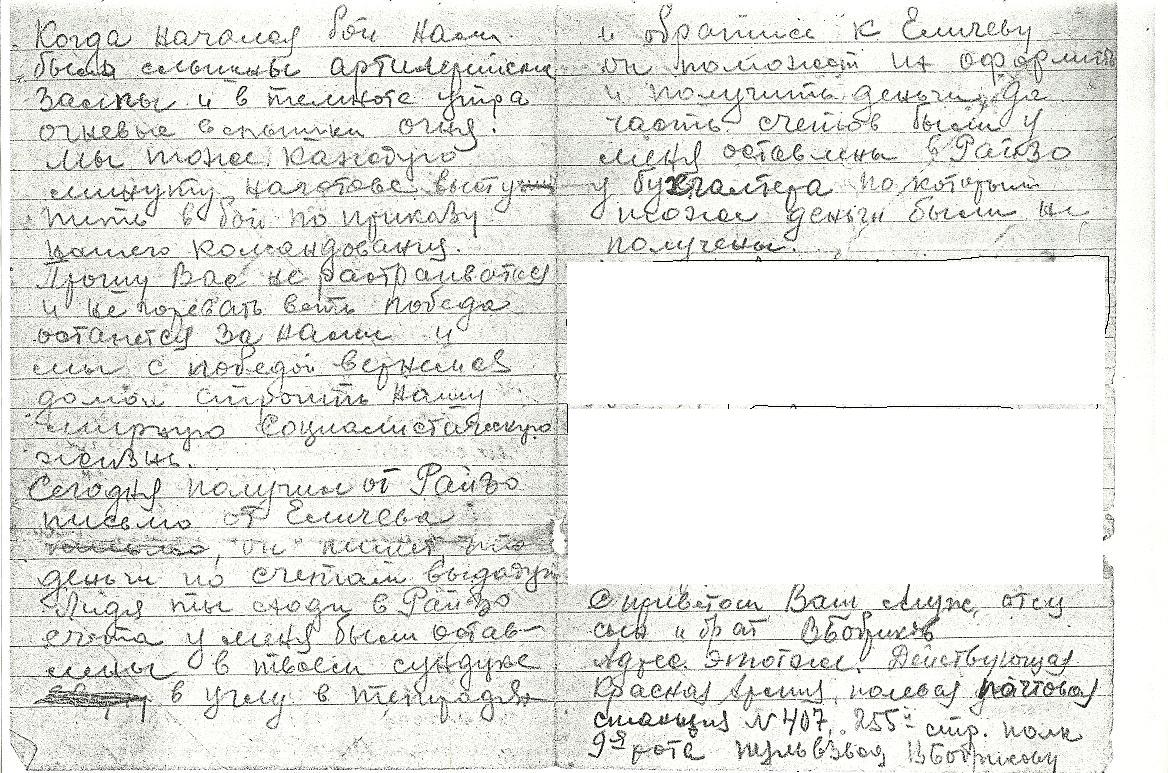 Когда начался бой нами
были слышны артилерийски
залпы и в темноте утра
огневые вспышки огня.
Мы тоже каждую
минуту наготове высту
пить в бой по приказу
нашего командования.
Прошу Вас не растраиватся
и не горевать веть победа
останется за нами и
мы с победой вернемся
домой строить нашу
мирную социалистическую
жизнь.
Сегодня получил от Райзо
письмо от Еличева
он пишет, что
деньги по счетам выдадут
Лидя ты сходи в Райзо
счета у меня были остав-
лены в твоем сундуке
в углу в тетрадях
и обратись к Еличеву
он поможет их оформить
и получить деньги, да
часть счетов были у
меня оставлены в Райзо
у бухгалтера по которым
тоже деньги были не
получены.
С приветом Ваш муж, отец
сын и брат ВБобриков
Адрес этотже Действующая
Красная Армия, полевая почтовая
станция N 407, 255й стр. полк
9я рота пульвзвод ВБобрикову